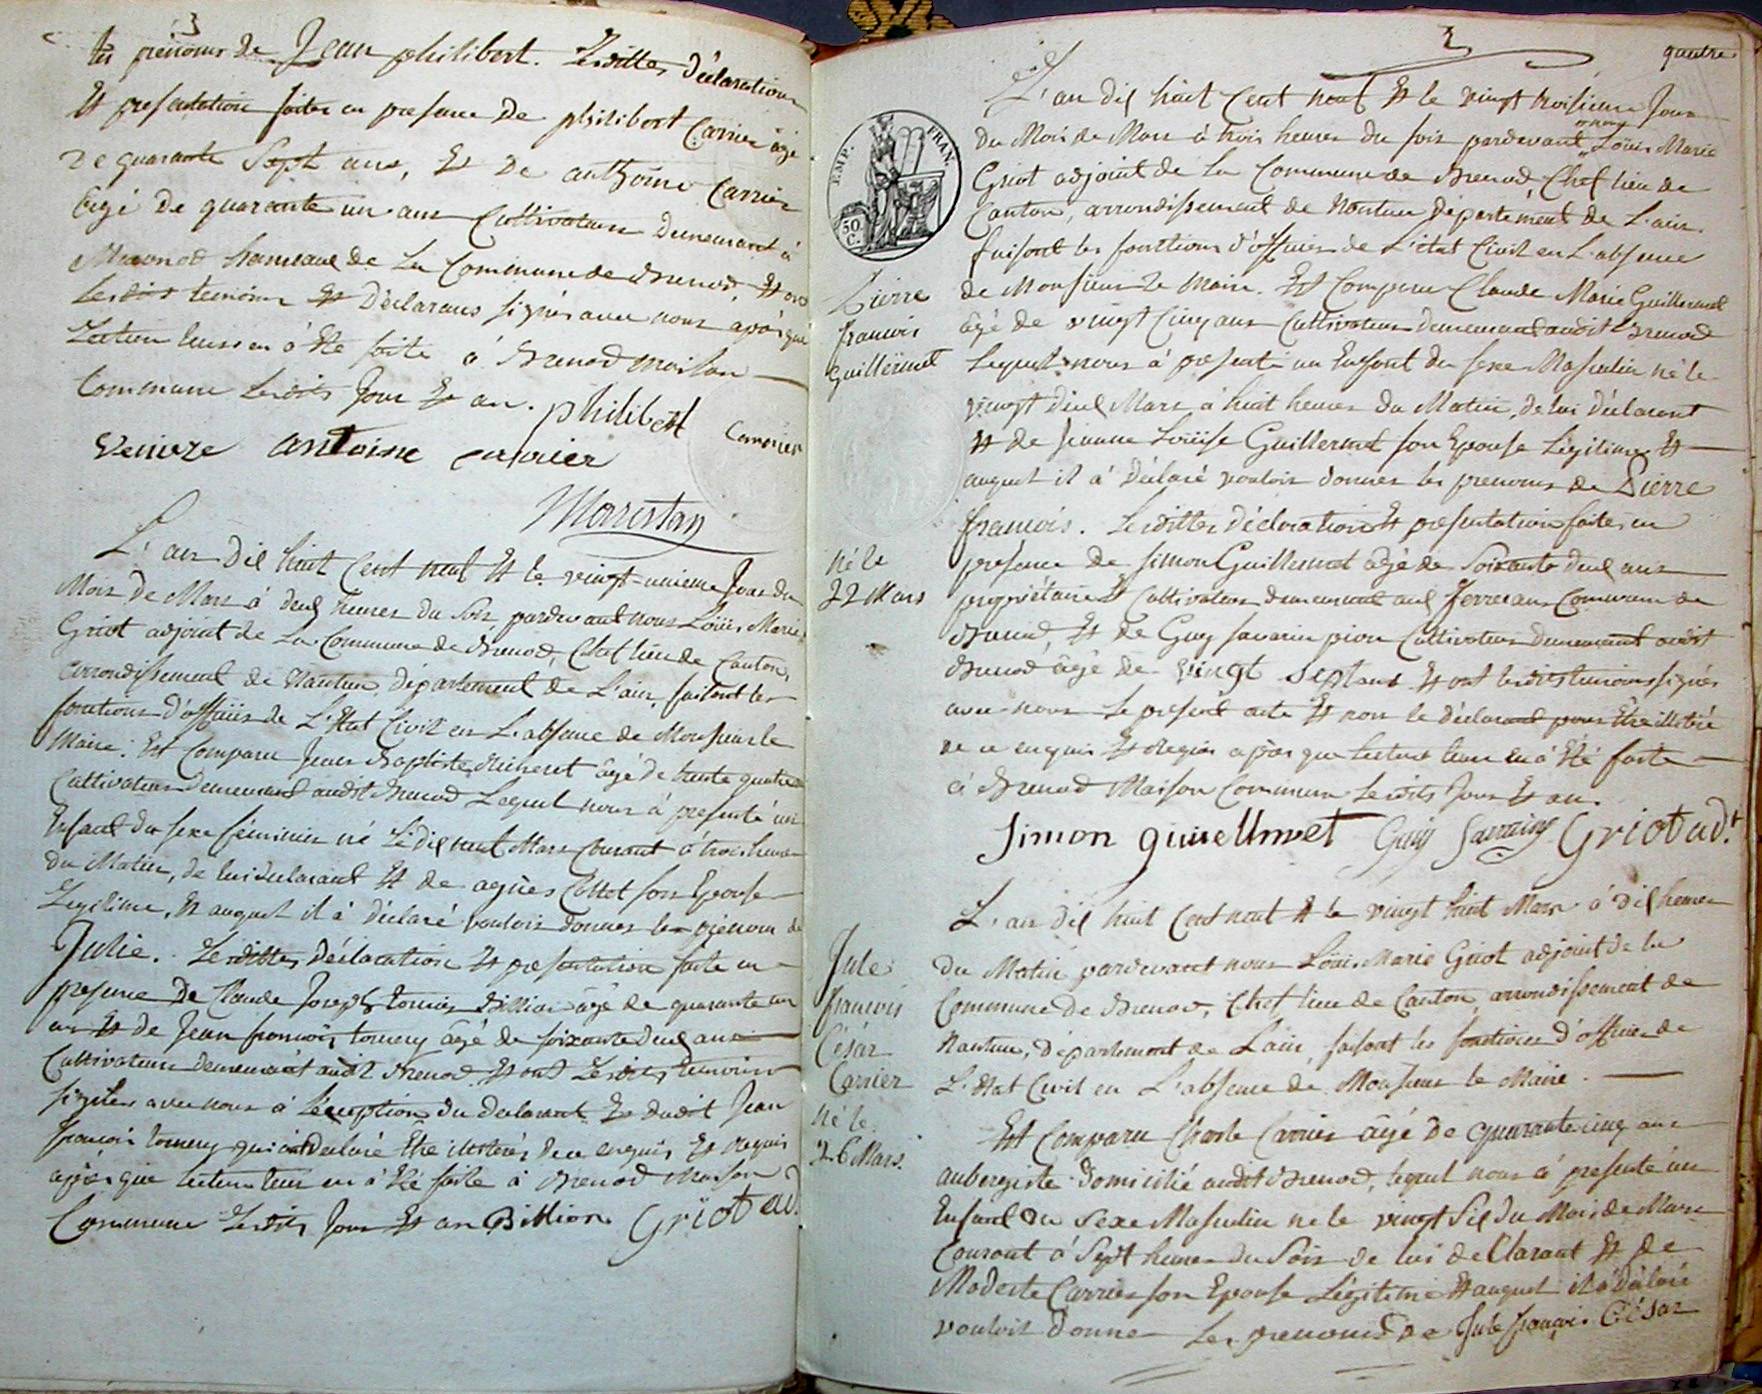 3
les prénoms de Jean philibert. Lesdittes déclaration
Et presentation faites en presence De philibert Carrier âgé
De quarante Sept ans, Et De anthoine Carrier
âgé De quarante un ans Cultivateurs Demeurant à
hameaux de La Commune de Brenod, Et ont
Lesdits temoins Et Déclarans signés avec nous après que
Lecture leur en à été faite à Brenod maison
Commune Lesdits Jour Et an. philibert Carrier
antoine carrier
L'an Dix huit Cent neuf Et le vingt-unieme Jour du
Mois De Mars à deux heures du Soir pardevant nous Loüis Marie
Griot adjoint de La Commune de Brenod, Chef lieu de Canton,
arrondissement de Nantua, département de L'ain, faisant les
fonctions d'officier de L'Etat Civil en L'absence de Monsieur le
Maire. Est Comparu Jean Baptiste âgé de trente quatre
Cultivateur Demeurant audit Brenod Lequel nous à presenté un
Enfant du sexe féminin né Le dix neuf Mars Courant à trois heures
du Matin, de lui declarant Et de agnès Collet son Epouse
Legitime, Et auquel il à déclaré vouloir donner les prénom de
Julie. Lesdittes Déclaration Et presentation faite en
presence De Claude Joseph Billion âgé de quarante un
ans Et de Jean françois tomery âgé de soixante deux ans
Cultivateurs demeurant audit Brenod Et ont Lesdits temoins
signés avec nous à L'éxception du declarant Et dudit Jean
françois tomery qui ont declaré être illetérés de ce enquis Et requis
après que lecture leur en à été faite à Brenod Maison
Commune Lesdits Jour Et an Billion Griot ad.
quatre
EMP. FRAN.
50 C.
L'an dix huit Cent neuf Et le vingt troisieme Jour
du Mois de Mars à trois heures du soir pardevant nous Louis Marie
Griot adjoint de La Commune de Brenod, Chef lieu de
Canton, arrondissement de Nantua Département de L'ain.
faisant les fonctions d'officier de L'état Civil en L'absence
de Monsieur Le Maire. Est Comparu Claude Marie Guillermet
âgé de vingt Cinq ans Cultivateur demeurant audit Brenod
Lequel nous à presenté un Enfant du sexe Masculin né le
vingt deux Mars à huit heures du Matin, de lui déclarant
Et de Jeanne Loüise Guillermet son Epouse Légitime Et
auquel il à déclaré vouloir donner les prenoms de Pierre
françois. Lesdittes Déclaration Et presentation faites en
presence de Simon Guillermet âgé de Soixante deux ans
propriétaire Et Cultivateur demeurant aux Commune de
Brenod, Et de Guy Savarin pion Cultivateur Demeurant audit
Brenod âgé de vingt Sept ans Et ont lesdits temoins signés
avec nous Le present acte Et non le déclarant pour Être illetéré
de ce enquis Et requis après que lecture leur en à Eté faite
à Brenod Maison Commune Lesdits Jour Et an.
Simon guuellmet Guy Savarin Griot adt.
Pierre
françois
Guillermet
né le
22 Mars
L'an dix huit Cent neuf Et le vingt huit Mars à dix heures
du Matin pardevant nous Loüis Marie Griot adjoint de la
Commune De Brenod, Chef lieu de Canton, arrondissement de
Nantua, département de L'ain, faisant les fonctions d'officier de
L'état Civil en L'absence de Monsieur le Maire.
Est Comparu Charle Carrier âgé de quarante cinq ans
aubergiste domicilié audit Brenod, lequel nous à presenté un
Enfant du Sexe Masculin né le vingt Six du Mois de Mars
Courant à Sept heures du Soir de lui declarant Et de
Modeste Carrier son Epouse Légitime Et auquel il à déclaré
vouloir donner Les prenoms De Jule françois César
Jule
françois
César
Carrier
né le
26 Mars.